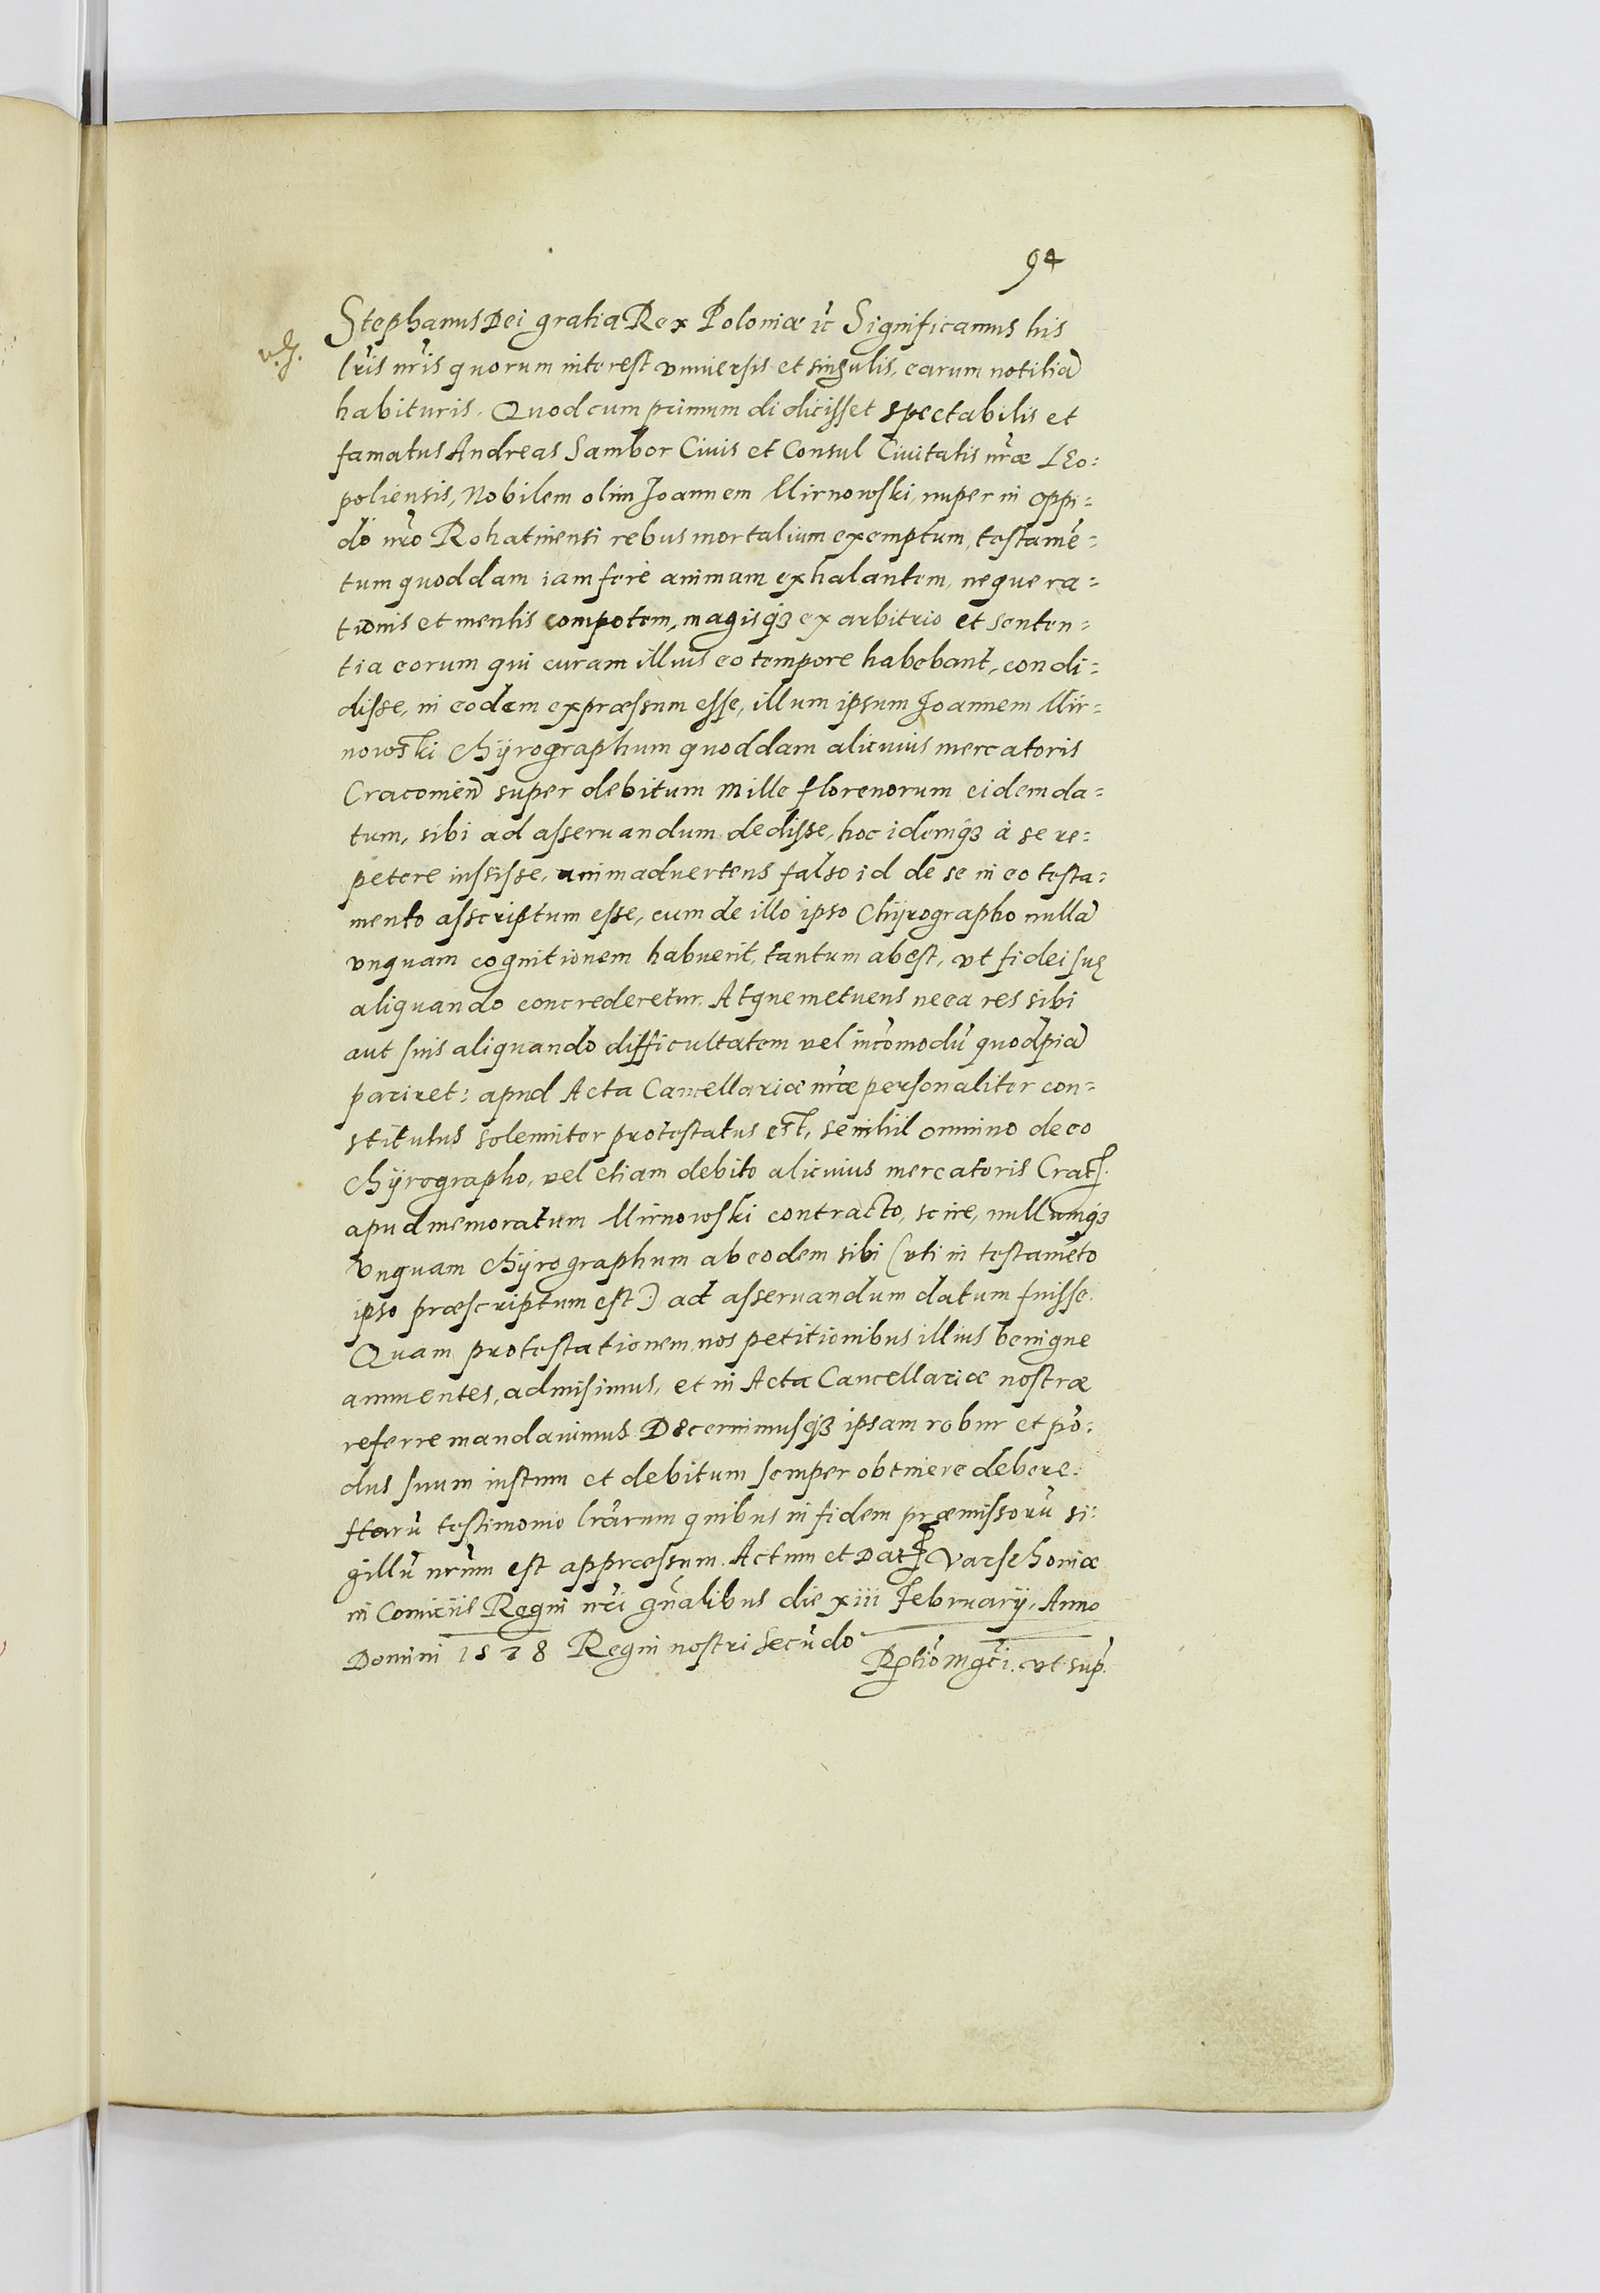 94
Stephanus Dei gratia Rex Poloniæ ꝛc Significamus his
lr̃is nr̃is quorum interest vniuersis et singulis, earum notitiã
habituris. Quod cum primum didicisset spectabilis et
famatus Andreas Sambor Ciuis et Consul Ciuitatis nr̃æ Leo:
poliensis, Nobilem olim Joannem Mirnowski, nuper in oppi:
do nr̃o Rohatinensi rebus mortalium exemptum, testamẽ:
tum quoddam iam ferè animam exhalantem, neque ra:
tionis et mentis compotem, magisqꝫ ex arbitrio et senten:
tia eorum qui curam illius eo tempore habebant, condi:
disse, in eodem expræssum esse, illum ipsum Joannem Mir:
nowski Chÿrographum quoddam alicuius mercatoris
Cracouień super debitum Mille florenorum eidem da:
tum, sibi ad asseruandum dedisse, hoc idemqꝫ à se re:
petere iussisse, animaduertens falso id de se in eo testa:
mento asscriptum esse, cum de illo ipso Chÿrographo nullã
vnquam cognitionem habuerit, tantum abest, vt fidei suę
aliquando concrederetur. Atque metuens ne ea res sibi
aut suis aliquando difficultatem vel incõmodũ quodpiã
pariret: apud Acta Cancellariæ nr̃æ personaliter con:
stitutus solenniter protestatus est, se nihil omnino de eo
Chÿrographo, vel etiam debito alicuius mercatoris Crac̃.
apud memoratum Mirnowski contracto, scire, nullumqꝫ
Vnquam Chÿrographum ab eodem sibi (vti in testamẽto
ipso præscriptum est) ad asseruandum datum fuisse.
Quam protestationem nos petitionibus illius benigne
annuentes, admisimus, et in Acta Cancellariæ nostræ
referre mandauimus. Decernimusqꝫ ipsam robur et põ:
dus suum iustum et debitum semper obtinere debere.
Harũ testimonio lr̃arum quibus in fidem præmissorũ si:
gillũ nr̃um est appræssum. Actum et Dat̃ Varschouiæ
in Comitijs Regni nr̃i gñalibus die xiii February, Anno
Domini 1578 Regni nostri Secũdo
Rꝑtio Mgc̃i. vt sup̃.